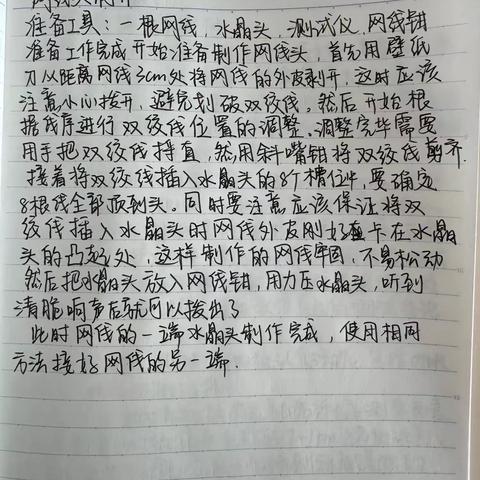 准备工具：一根网线，水晶头，测试仪，网线钳
准备工作完成开始准备制作网线头，首先用壁纸
刀从距离网线3cm处将网线的外皮剥开，这时应该
注意小心拨开，避免划破双绞线，然后开始根
据线序进行双绞线位置的调整、调整完毕需要
用手把双绞线捋直，然用斜嘴钳将双绞线剪齐.
接着将双绞线插入水晶头的8个槽位中，要确定
8根线全部顶到头。同时要注意应该保证将双
绞线插入水晶头时网线外皮刚好卡在水晶
头的凸起处，这样制作的网线牢固，不易松动
然后把水晶头放入网线钳，用力压水晶头，听到
清脆响声后就可以拨出了
此时网线的一端水晶头制作完成，使用相同
方法接好网线的另一端.